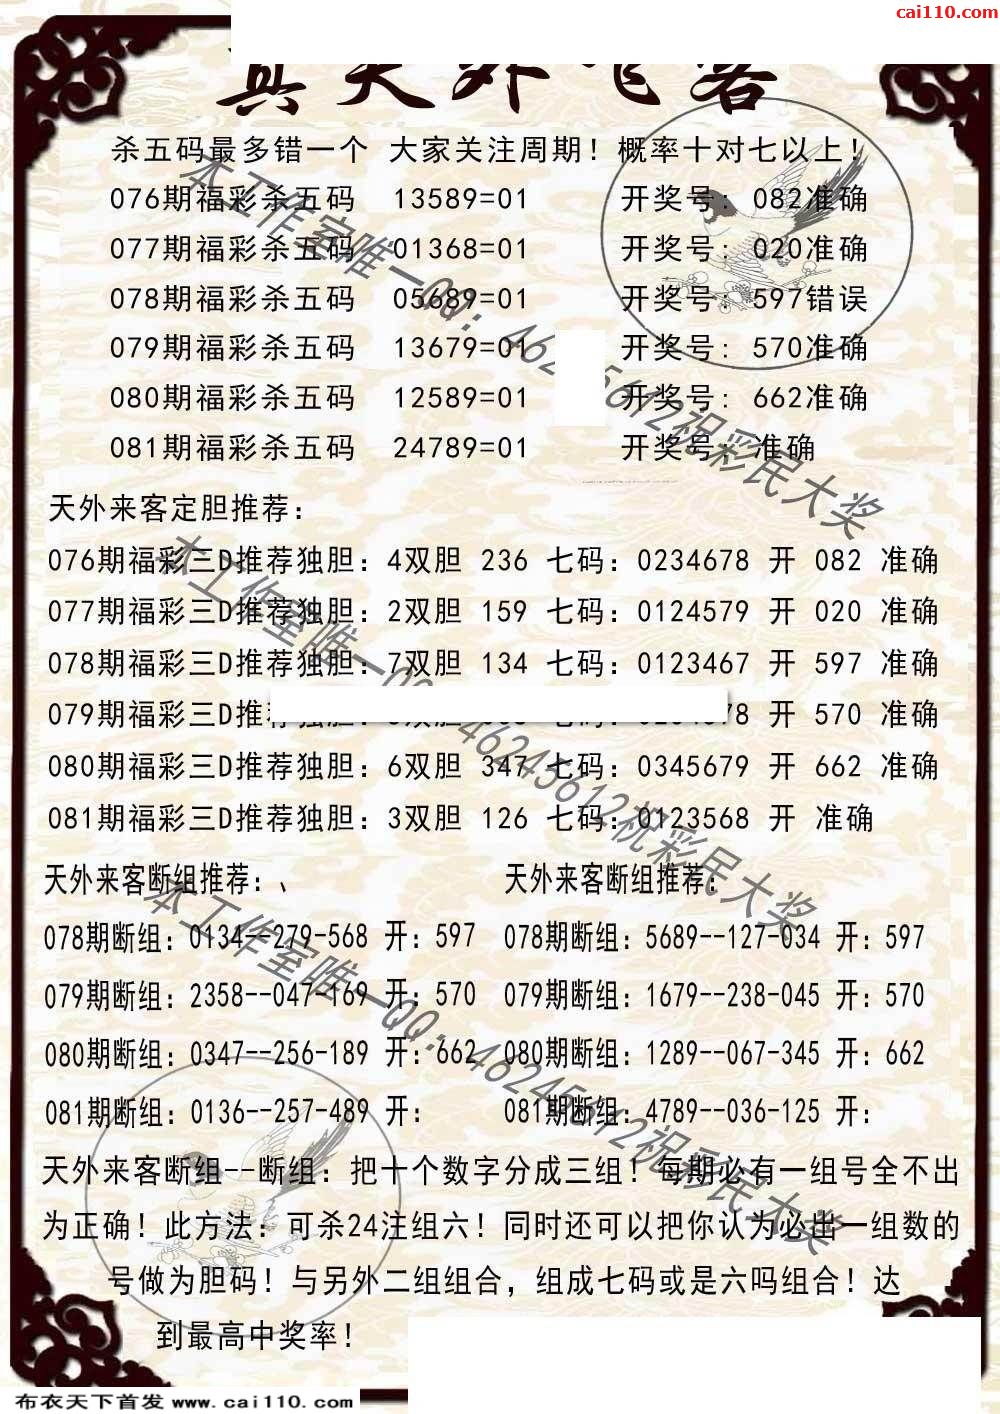 cai110.com
真天外飞客
杀五码最多错一个 大家关注周期！概率十对七以上！
076期福彩杀五码 13589=01 开奖号: 082准确
077期福彩杀五码 01368=01 开奖号: 020准确
078期福彩杀五码 05689=01 开奖号: 597错误
079期福彩杀五码 13679=01 开奖号: 570准确
080期福彩杀五码 12589=01 开奖号: 662准确
081期福彩杀五码 24789=01 开奖号: 准确
天外来客定胆推荐:
076期福彩三D推荐独胆: 4双胆 236 七码: 0234678 开 082 准确
077期福彩三D推荐独胆: 2双胆 159 七码: 0124579 开 020 准确
078期福彩三D推荐独胆: 7双胆 134 七码: 0123467 开 597 准确
079期福彩三D推 78 开 570 准确
080期福彩三D推荐独胆: 6双胆 347 七码: 0345679 开 662 准确
081期福彩三D推荐独胆: 3双胆 126 七码: 0123568 开 准确
天外来客断组推荐:、 天外来客断组推荐:
078期断组: 0134--279-568 开: 597 078期断组: 5689--127-034 开: 597
079期断组: 2358--047-169 开: 570 079期断组: 1679--238-045 开: 570
080期断组: 0347--256-189 开: 662 080期断组: 1289--067-345 开: 662
081期断组: 0136--257-489 开: 081期断组: 4789--036-125 开:
天外来客断组--断组: 把十个数字分成三组！每期必有一组号全不出
为正确！此方法: 可杀24注组六！同时还可以把你认为必出一组数的
号做为胆码！与另外二组组合，组成七码或是六吗组合！达
到最高中奖率！
本工作室唯一QQ: 462 5612祝彩民大奖
本工作室唯一QQ 46245612祝彩民大奖
本工作室唯一QQ: 46245612祝彩民大奖
布衣天下首发 www.cai110.com